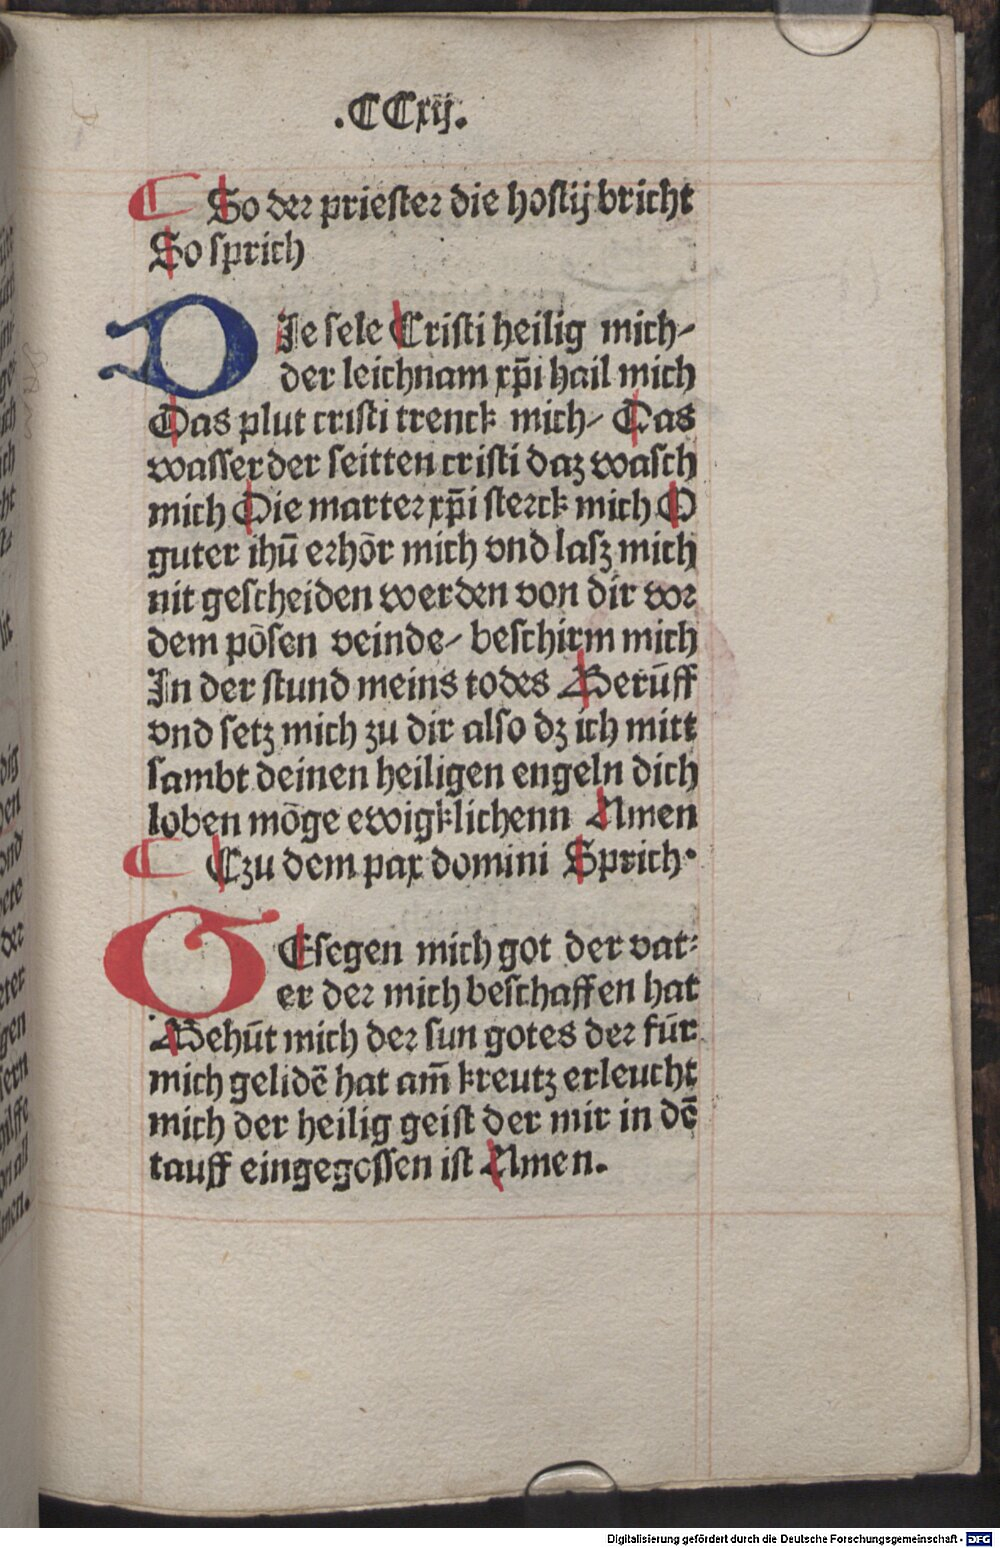 .CCxij.
So der priester die hostij bricht
So sprich
DIe sele Cristi heilig mich/
der leichnam xp̄i hail mich
Das plut cristi trenck mich/ Das
wasser der seitten cristi daz wasch
mich Die marter xp̄i sterck mich O
guter ihū erhōr mich vnd lasz mich
nit gescheiden werden von dir vor
dem pōsen veinde/ beschirm mich
In der stund meins todes Berūff
vnd setz mich zu dir also dz ich mitt
sambt deinen heiligen engeln dich
loben mōge ewigklichenn Amen
Czu dem pax domini Sprich.
GEsegen mich got der vat⸗
er der mich beschaffen hat
Behūt mich der sun gotes der fūr
mich gelidē hat am̄ kreutz erleucht
mich der heilig geist der mir in dē
tauff eingegossen ist Amen.
Digitalisierung gefördert durch die Deutsche Forschungsgemeinschaft - DFG